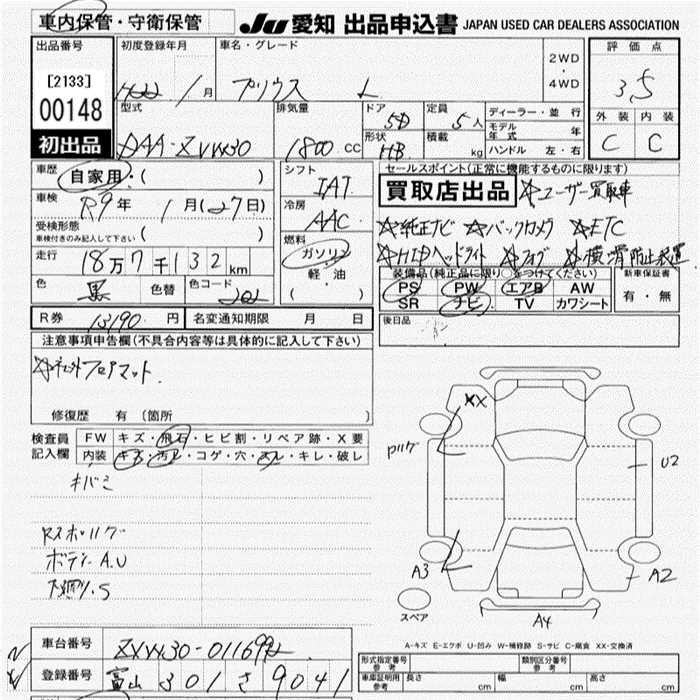 車内保管・守衛保管
JU 愛知 出品申込書 JAPAN USED CAR DEALERS ASSOCIATION
出品番号 初度登録年月 車名・グレード 2WD・4WD 評価点
[2133] 1月 プリウス L 3.5
00148
初出品 型式 排気量 ドア 5D 定員 5人 ディーラー・並行 外装 内装
DAA-ZVW30 1800 CC 形状 HB 積載 kg モデル年式 年 C C
ハンドル 左・右
車歴 自家用・( ) シフト IAT セールスポイント(正常に機能するものに限ります)
車検 R9年 1月(27日) 冷房 AAC 買取店出品 ☆ユーザー買取車
受検形態 車検付きのみ記入して下さい ( ) ☆純正ナビ ☆バックカメラ ☆ETC
走行 18万7千132km 燃料 ガソリン 軽・油 ( ) ☆HIDヘッドライト ☆フォグ ☆横滑防止装置
色 黒 色替 色コード 202 装備品(純正品に限り○をつけてください) 新車保証書
PS PW エアB AW 有・無
SR ナビ TV カワシート
R券 13190円 名変通知期限 月 日 後日品
注意事項申告欄(不具合内容等は具体的に記入して下さい)
☆社外フロアマット
修復歴 有(箇所 )
検査員記入欄 FW キズ・飛石・ヒビ割・リペア跡・X要
内装 キズ・汚レ・コゲ・穴・スレ・キレ・破レ
キバミ
ボデー A.U
下廻り.S
XX
U2
A3
A2
A4
スペア
A-キズ E-エクボ U-凹み W-補修跡 S-サビ C-腐食 XX-交換済
車台番号 ZVW30-011699
登録番号 富山 301 さ 9041
形式指定番号 参考 類別区分番号 参考
車庫証明用 参考 長さ cm 幅 cm 高さ cm